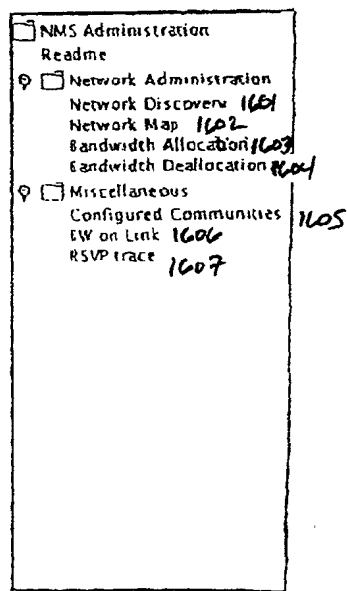 NMS Administration
Readme
Network Administration
Network Discovery 1601
Network Map 1602
Bandwidth Allocation 1603
Bandwidth Deallocation 1604
Miscellaneous
Configured Communities 1605
BW on Link 1606
RSVP trace 1607